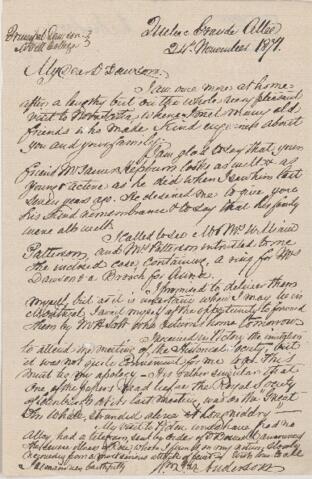 Principal Dawson
McGill College
Quebec Grande Allée
24th November 1877.
My dear Dawson.
I am once more at home
after a lengthy but on the whole very pleasant
visit to Nova Scotia, where I met many old
friends who made kind enquiries about
you and your family.
I am glad to say that your
friend Mr James Hepburn looks as well & as
young & active as he did when I saw him last
years ago. He desired me to give you
his kind remembrance & to say that his family
were all well.
I called to see Mr & Mrs W.
Patterson, and Mrs Patterson entrusted to me
the inclosed case containing a ring for Mrs
Dawson & a Broach for Anna.
I promised to deliver them
myself, but as it is uncertain when I may be in
Montreal I avail myself of the opportunity to forward
them by Mr Scott who returns home tomorrow.
I received in Pictou the invitation
to attend the meeting of the Historical Society, but
it was not quite convenient for me and this
must be my apology. It is rather singular that
one of the papers read before the Royal Society
of Edinburgh at its last meeting was on the Great
Whale stranded alive at Longniddry
My visit to Pictou would have had no
alloy, had a telegram sent by order of Dr
illness of one whom I found on my return slowly
recovering from a attack of. With love to all
I remain as faithfully
Wm Anderson